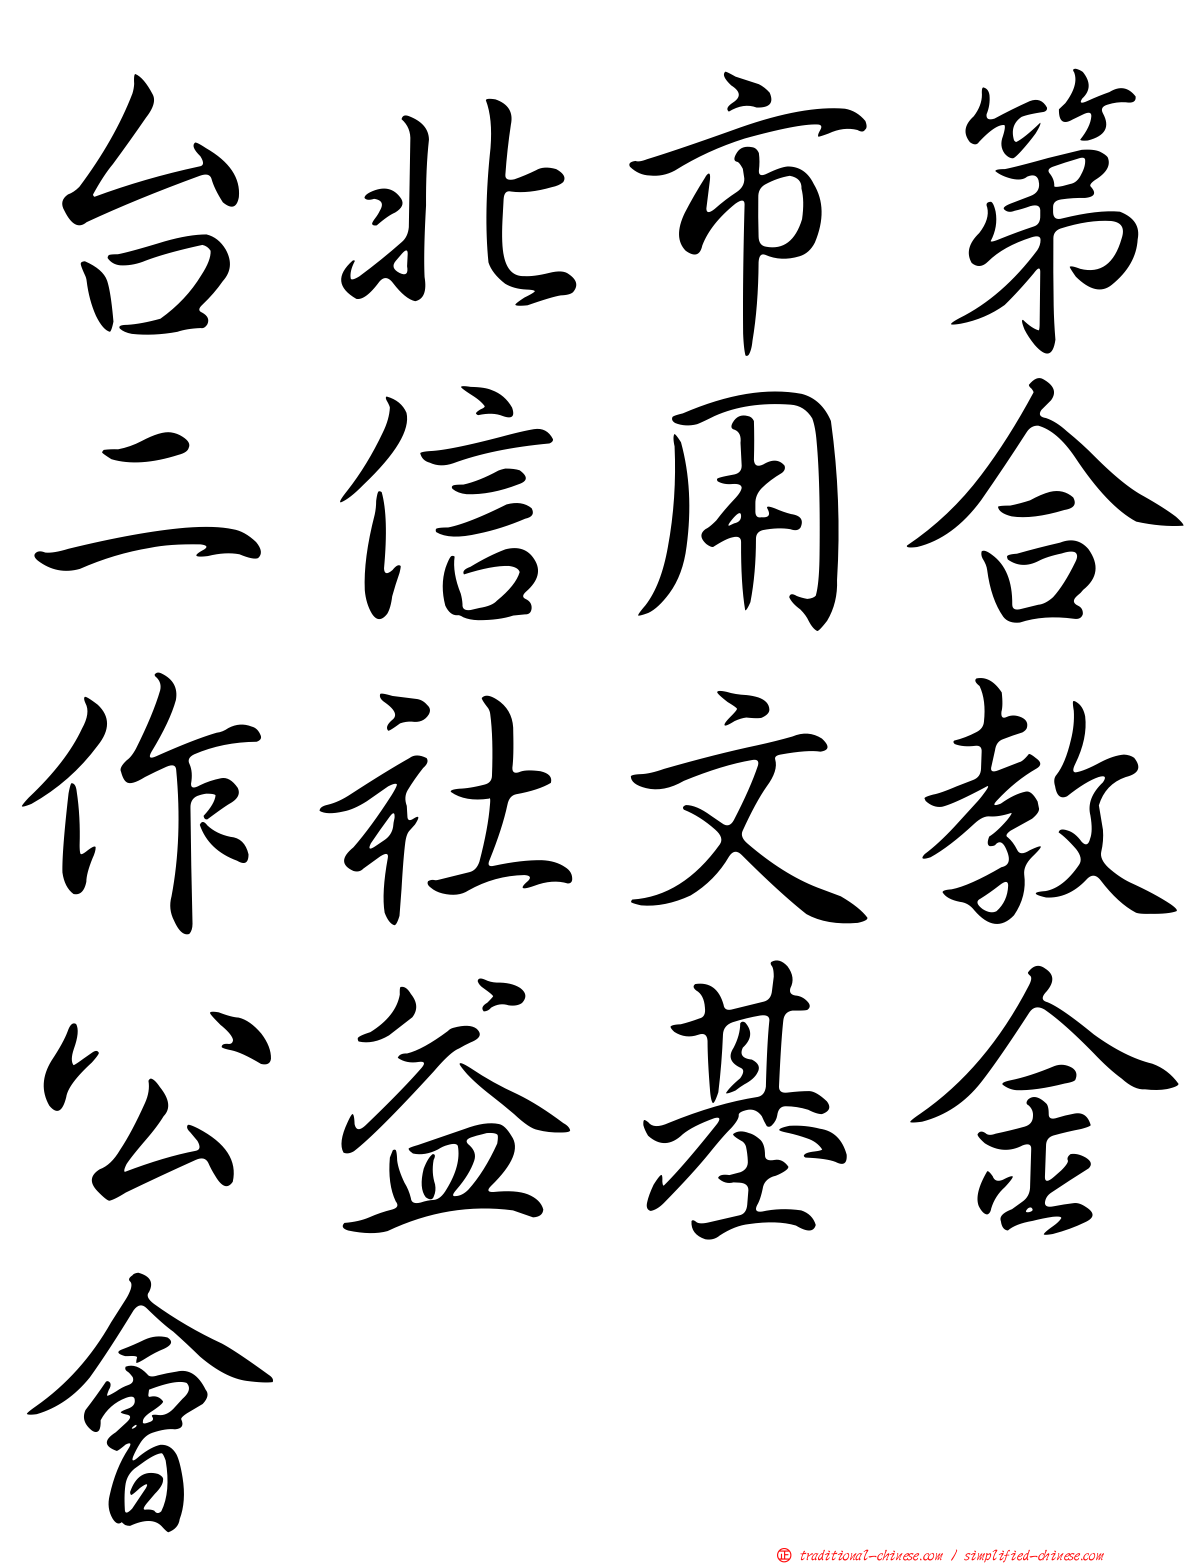 台北市第
二信用合
作社文教
公益基金
會
正 traditional-chinese.com / simplified-chinese.com